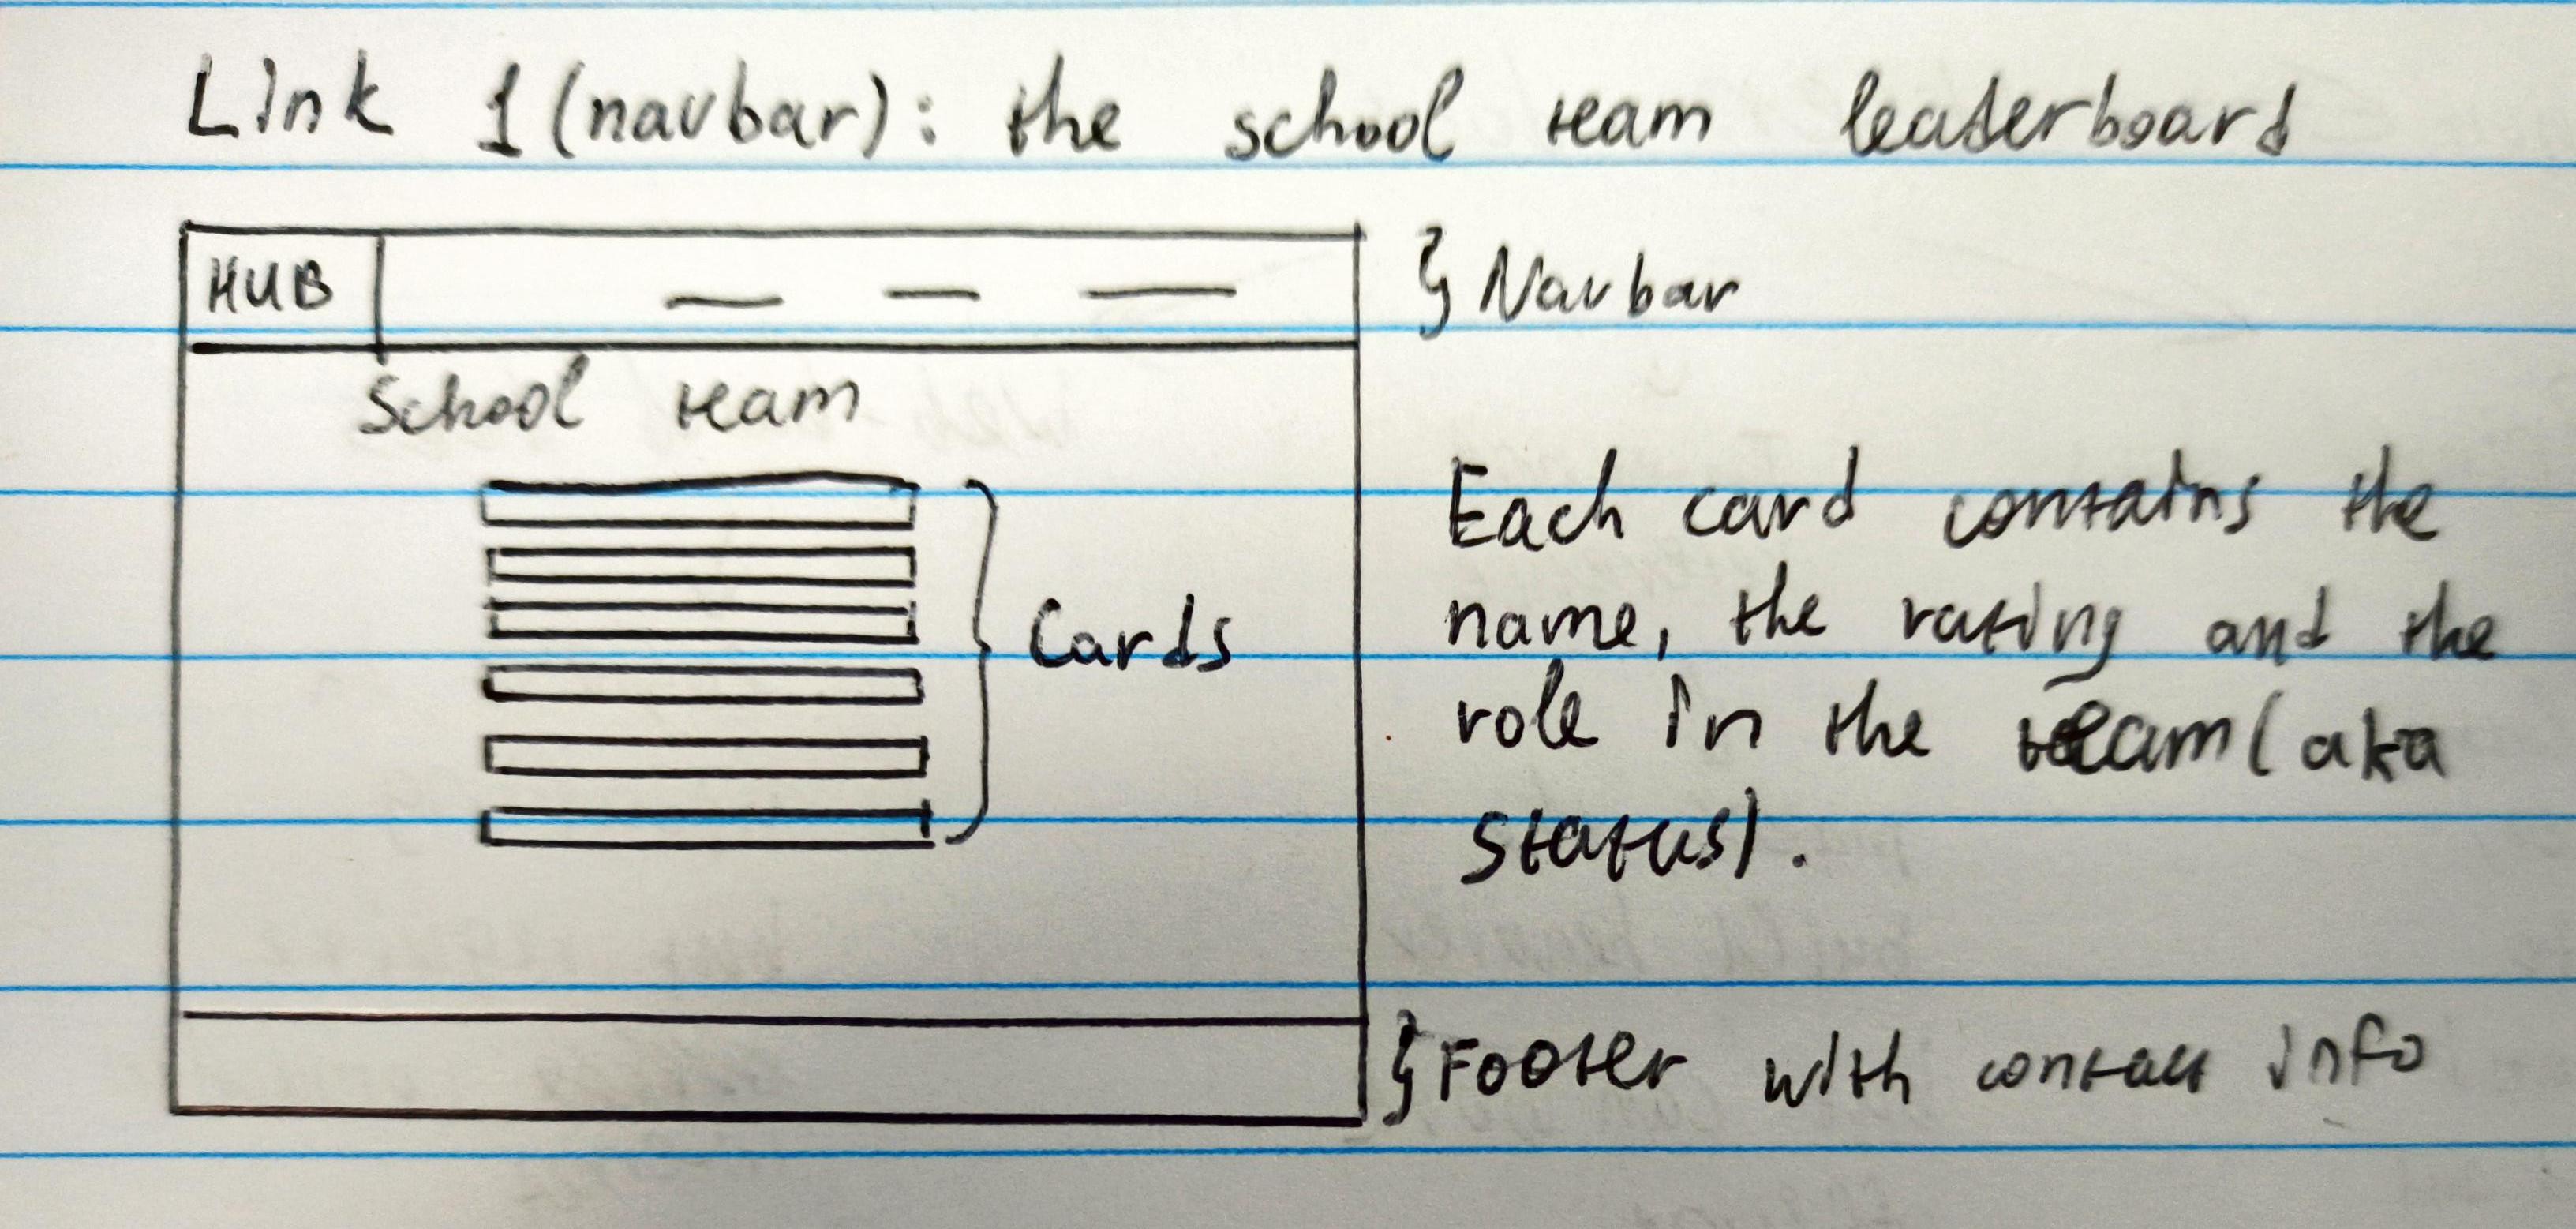 Link 1 (navbar): the school team leaderboard
HUB
} Navbar
School team
Cards
Each card contains the
name, the rating and the
role in the team (aka
status).
} Footer with contact info